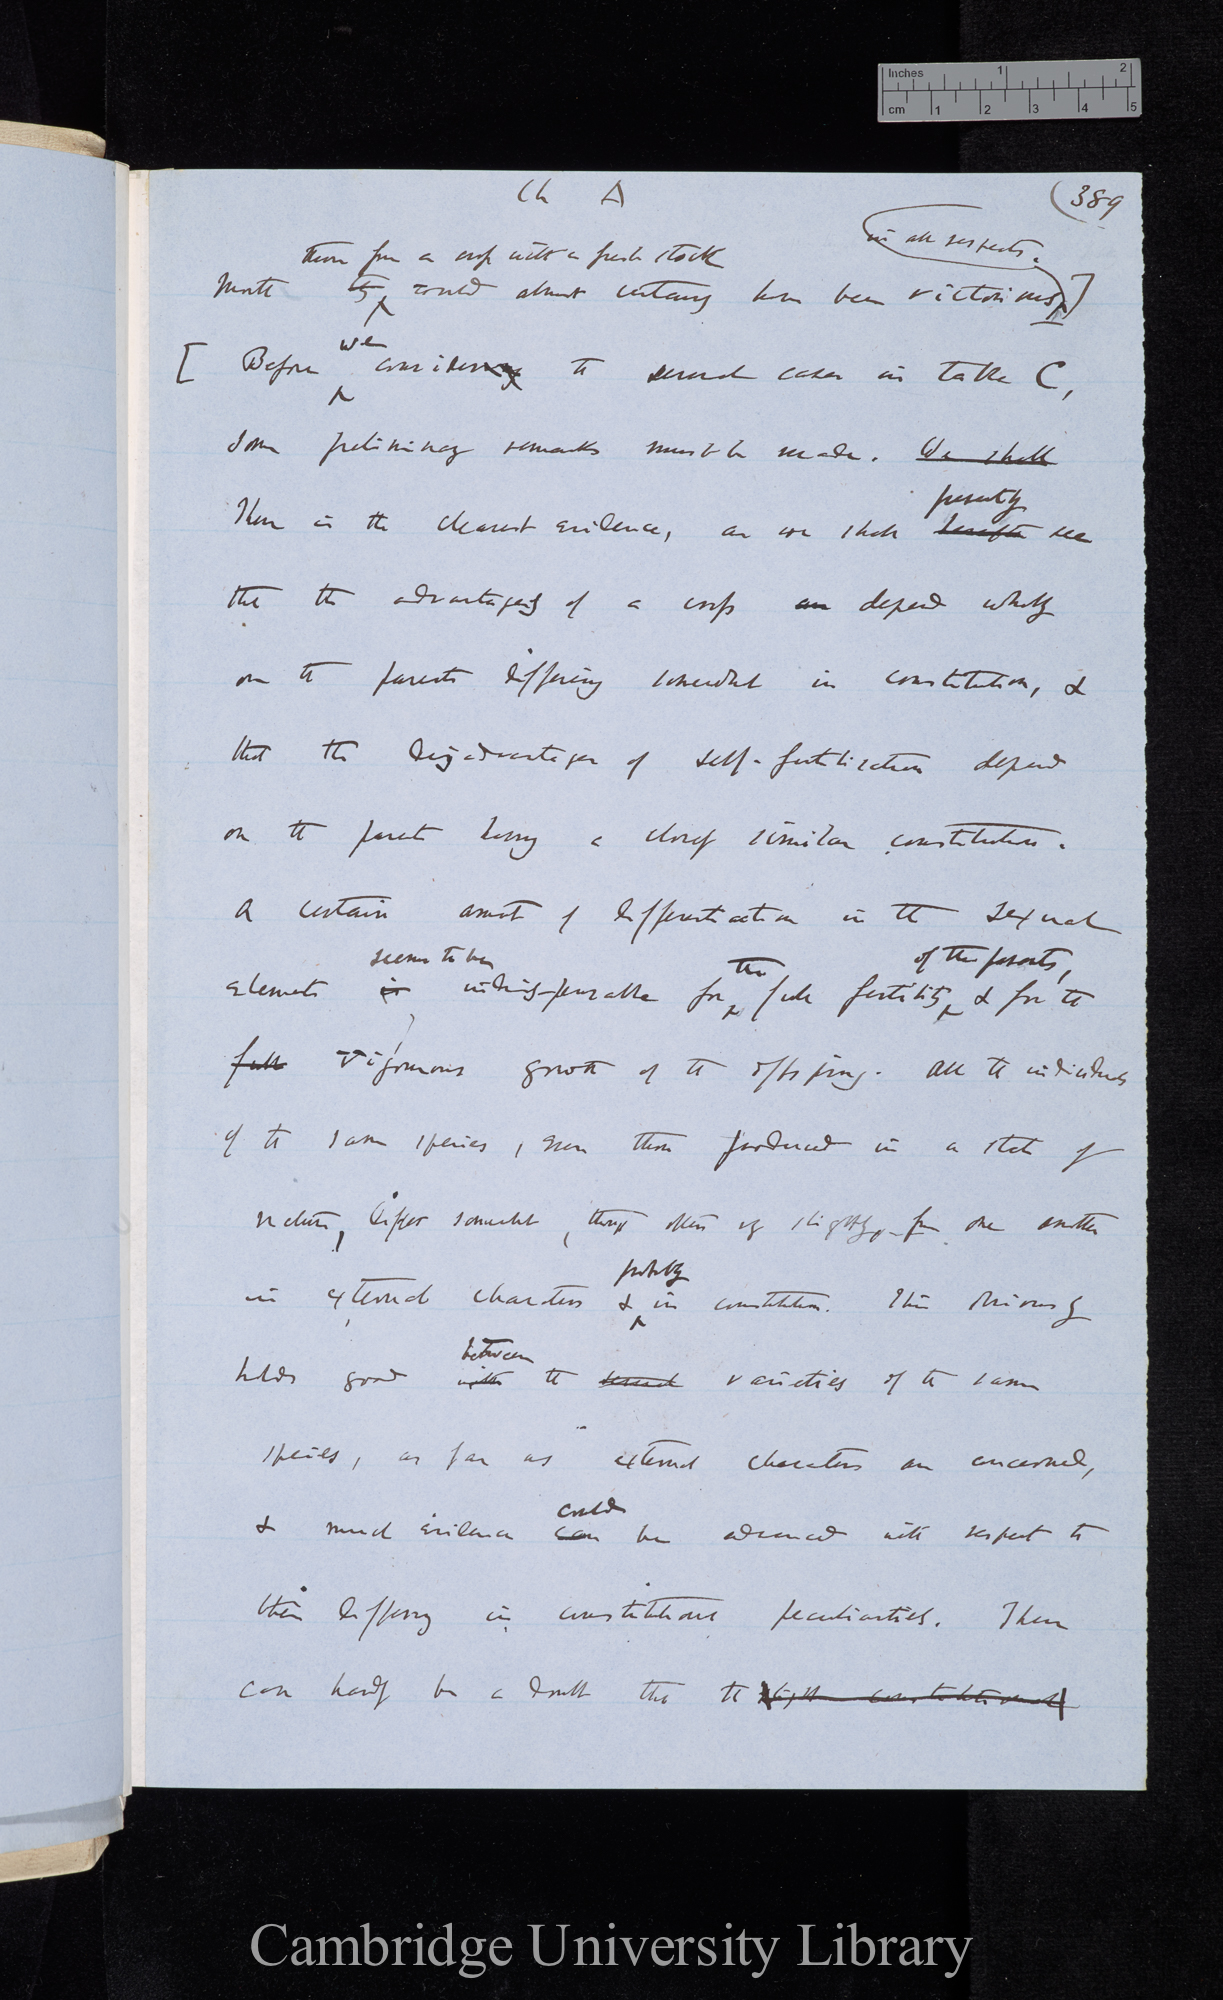 Inches 1 2
cm 1 2 3 4 5
Ch A (389
those from a cross with a fresh stock in all respects.
mouth they would almost certainly have been victorious]
we
[Before considering the several cases in table C,
Some preliminary remarks must be made. We shall
presently
There is the clearest evidence, as we shall hereafter see
that the advantages of a cross depend wholly
on the parents differing somewhat in constitution, &
that the disadvantages of self-fertilization depend
on the parents having a closely similar constitution.
A certain amount of differentiation in the sexual
seems to be the of the parents,
elements is indispensable for full fertility & for the
full vigorous growth of the offspring. All the individuals
of the same species, even those produced in a state of
nature, differ somewhat, though often very slightly, from one another
probably
in external characters & in constitution. This obviously
between
holds good with the several varieties of the same
species, as far as external characters are concerned,
could
& much evidence can be advanced with respect to
their differing in constitutional peculiarities. There
can hardly be a doubt that the slight constitutional
Cambridge University Library